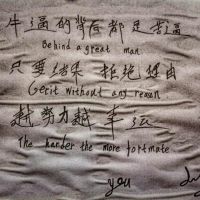 牛逼的背后都是苦逼
Behind a great man
只要结果 拒绝理由
Gerit without any reason
越努力越幸运
The harder the more fortmate
you